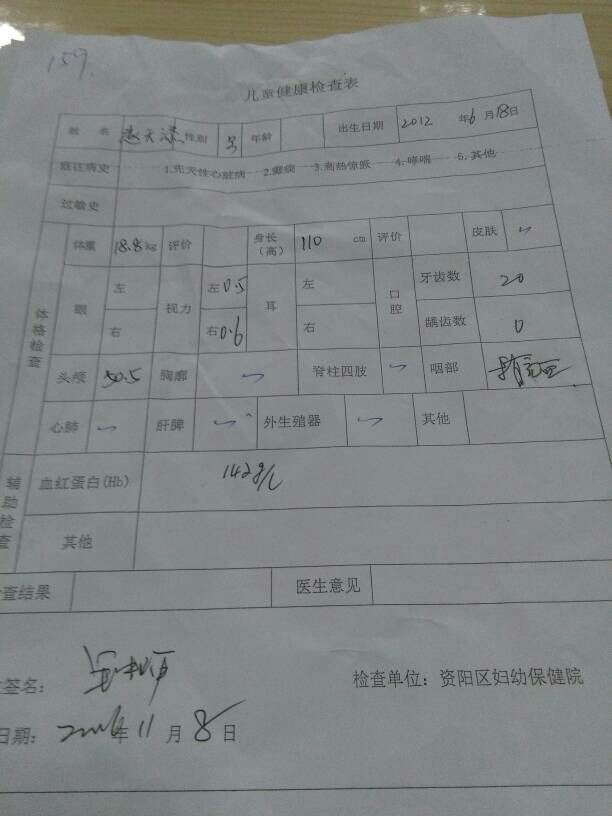 159.
儿童健康检查表
姓 名 性别 男 年龄 出生日期 2012 年6月18日
既往病史 1.先天性心脏病 2.癫痫 3.高热惊厥 4.哮喘 5.其他
过敏史
体格检查
体重 18.8kg 评价 身长(高) 110 cm 评价 皮肤 ✓
眼 左 视力 左0.5 耳 左 口腔 牙齿数 20
右 右0.6 右 龋齿数 0
头颅 50.5 胸廓 ✓ 脊柱四肢 ✓ 咽部
心肺 ✓ 肝脾 ✓ 外生殖器 ✓ 其他
辅助检查
血红蛋白(Hb) 142g/L
其他
检查结果 医生意见
签名: 检查单位:资阳区妇幼保健院
日期: 2016年11月8日